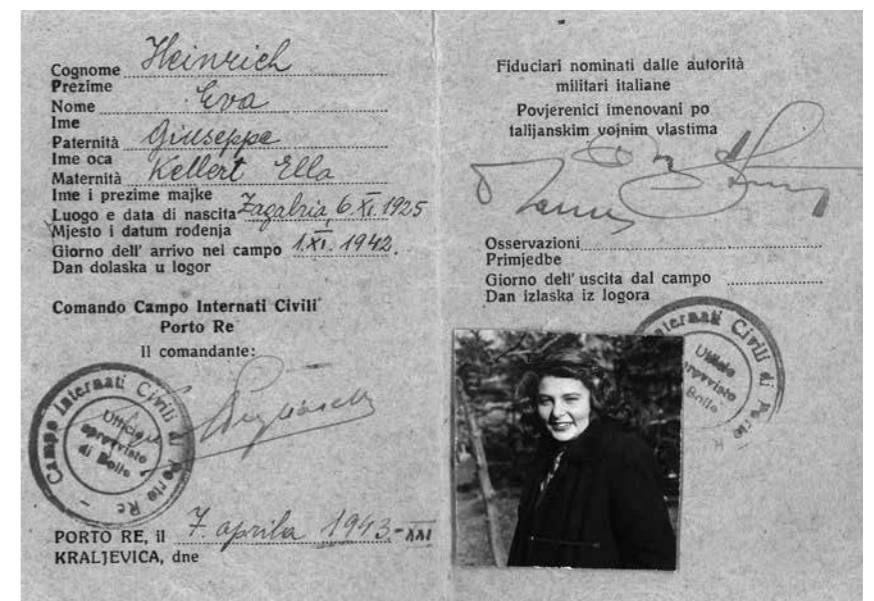 Cognome Heinrich
Prezime
Nome Eva
Ime
Paternità Giuseppe
Ime oca
Maternità Kellert Ella
Ime i prezime majke
Luogo e data di nascita Zagabria, 6. XI. 1925
Mjesto i datum rođenja
Giorno dell' arrivo nel campo 1. XI. 1942.
Dan dolaska u logor
Comando Campo Internati Civili
Porto Re
Il comandante:
Campo Internati Civili di Porto Re
Ufficio
sprovvisto
di Bollo
PORTO RE, il 7. aprila 1943-XXI
KRALJEVICA, dne
Fiduciari nominati dalle autorità
militari italiane
Povjerenici imenovani po
talijanskim vojnim vlastima
Osservazioni
Primjedbe
Giorno dell' uscita dal campo
Dan izlaska iz logora
Internati Civili di Porto R
Ufficio
sprovvisto
Bollo